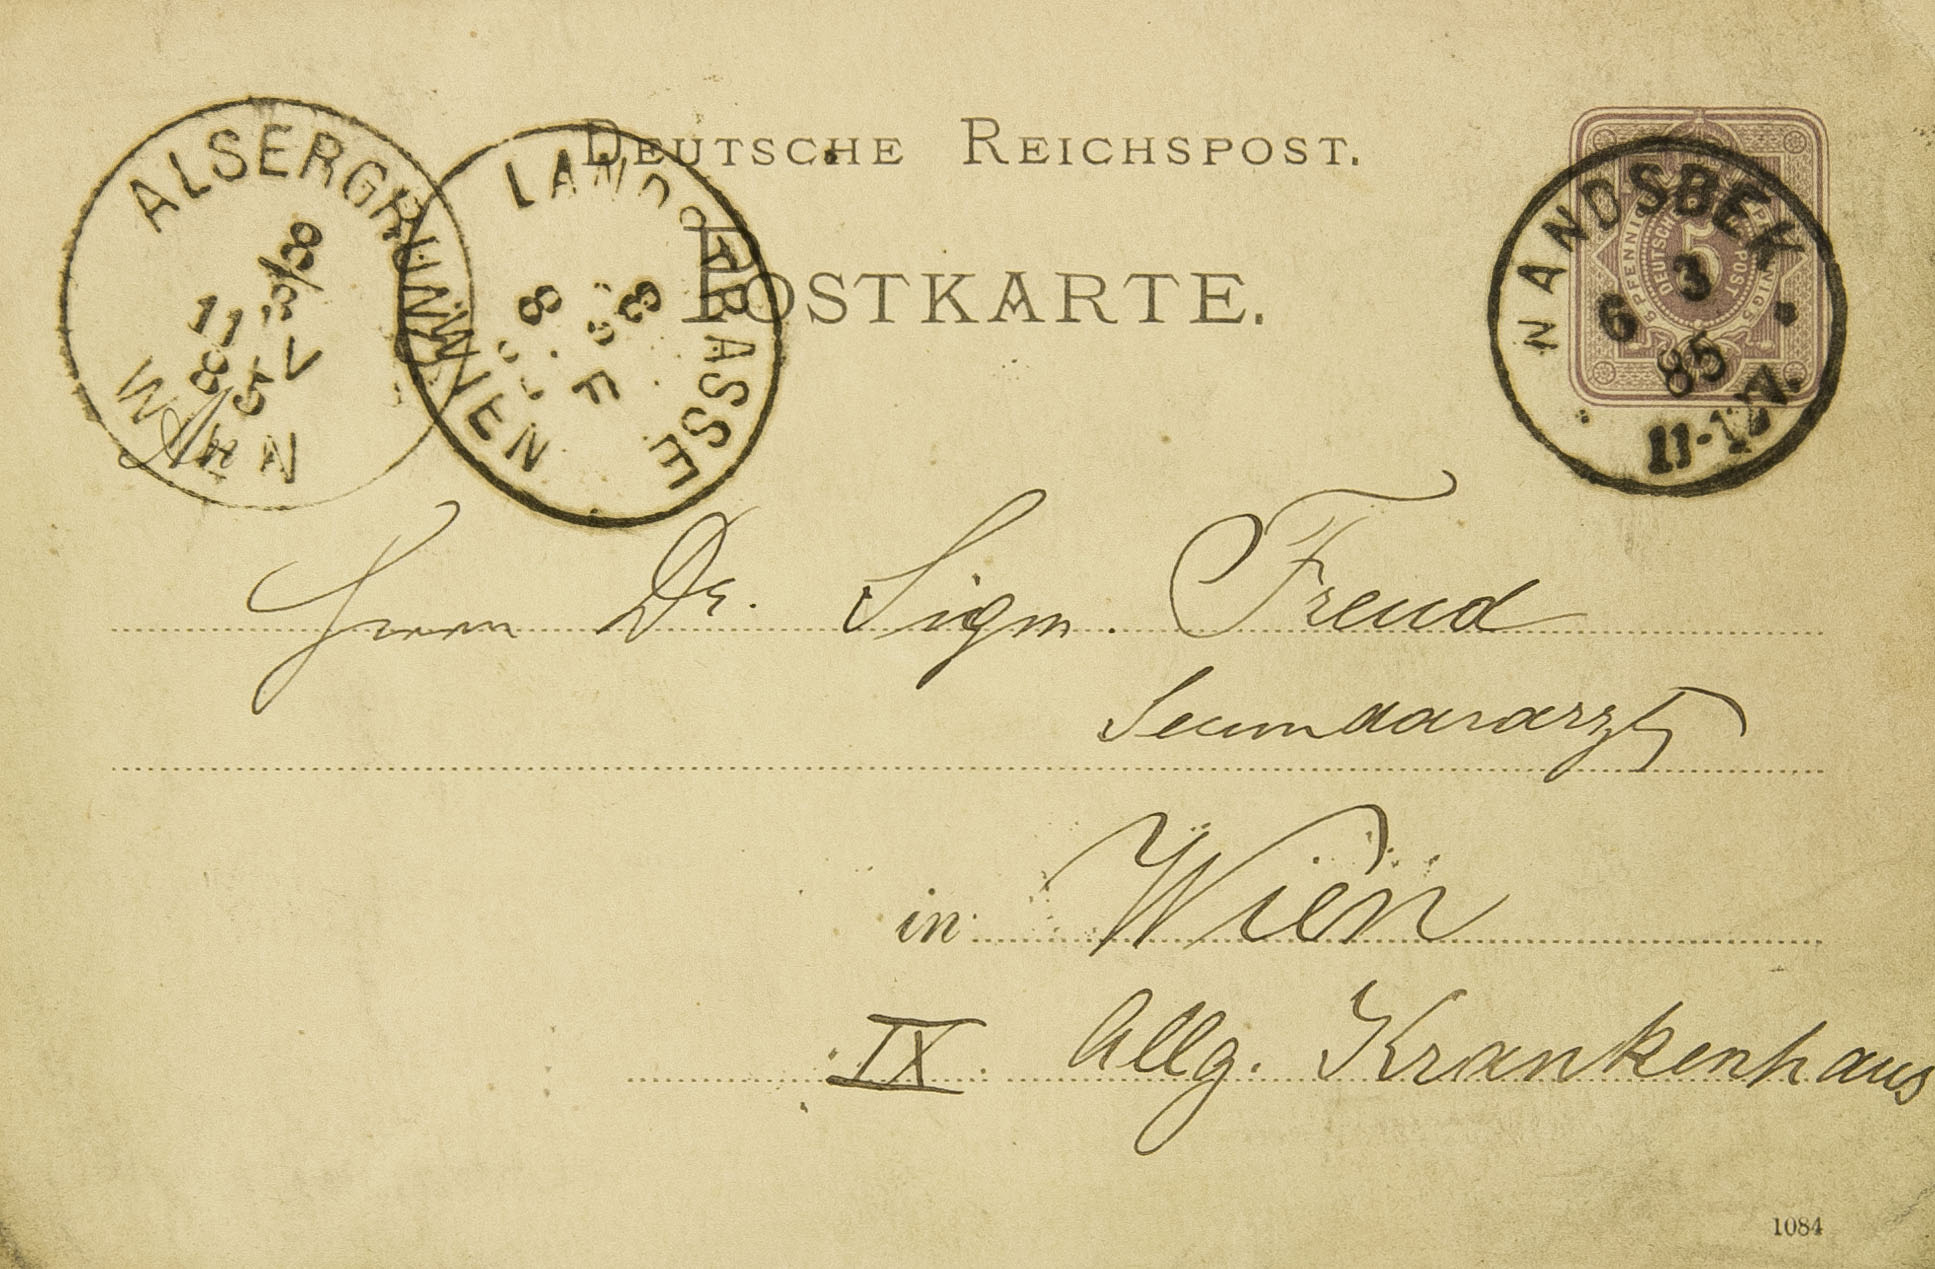 DEUTSCHE REICHSPOST.
POSTKARTE.
ALSERGRUND
8/3
11 V
85
WIEN
LANDSTRASSE
8 3
F
WIEN
5 PFENNIG
DEUTSCHE
5
POST
WANDSBEK
6 3
85
11-12V.
Herrn Dr. Sigm. Freud
Secundararzt
in Wien
IX. Allg. Krankenhaus
1084